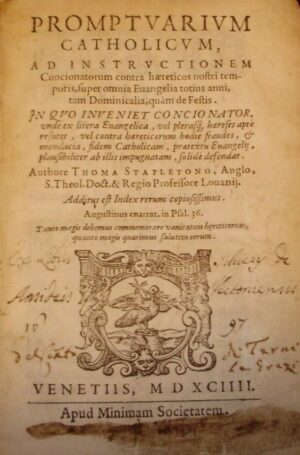 PROMPTVARIVM
CATHOLICVM,
AD INSTRVCTIONEM
Concionatorum contra hæreticos nostri tem-
poris, super omnia Euangelia totius anni,
tam Dominicalia, quàm de Festis.
IN QVO INVENIET CONCIONATOR,
vnde ex litera Euangelica, vel plerasq; hæreses apte
refutet, vel contra hæreticorum hodie fraudes, &
mendacia, fidem Catholicam, prætextu Euangelij,
plausibiliter ab illis impugnatam, solide defendat.
Authore THOMA STAPLETONO, Anglo,
S. Theol. Doct. & Regio Professore Louanij.
Additus est Index rerum copiosissimus.
Augustinus enarrat. in Psal. 36.
Tanto magis debemus commemorare vanitatem hæreticorum,
quanto magis quærimus salutem eorum.
Ex
16 97
de
VENETIIS, M D XCIIII.
Apud Minimam Societatem.